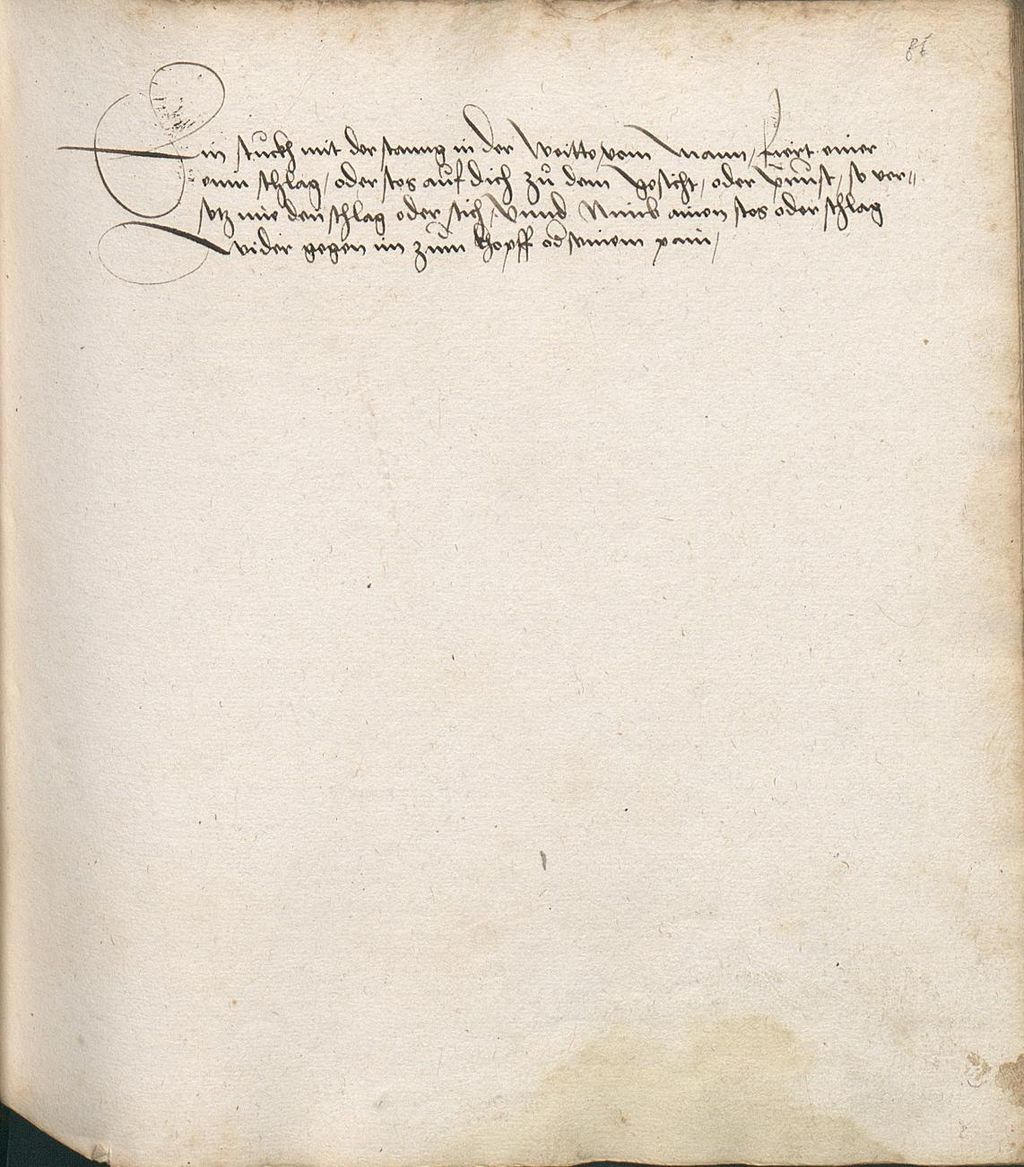 86
Ein stuckh mit der stanng in der Weitte vom Mann, fuert einer
einn schlag, oder stos auf dich zu dem gesicht, oder prust, so ver=
setz nie den schlag oder stich, Vnnd Nimb ainen stos oder schlag
wider gegen im zum khopff od seinem pain,